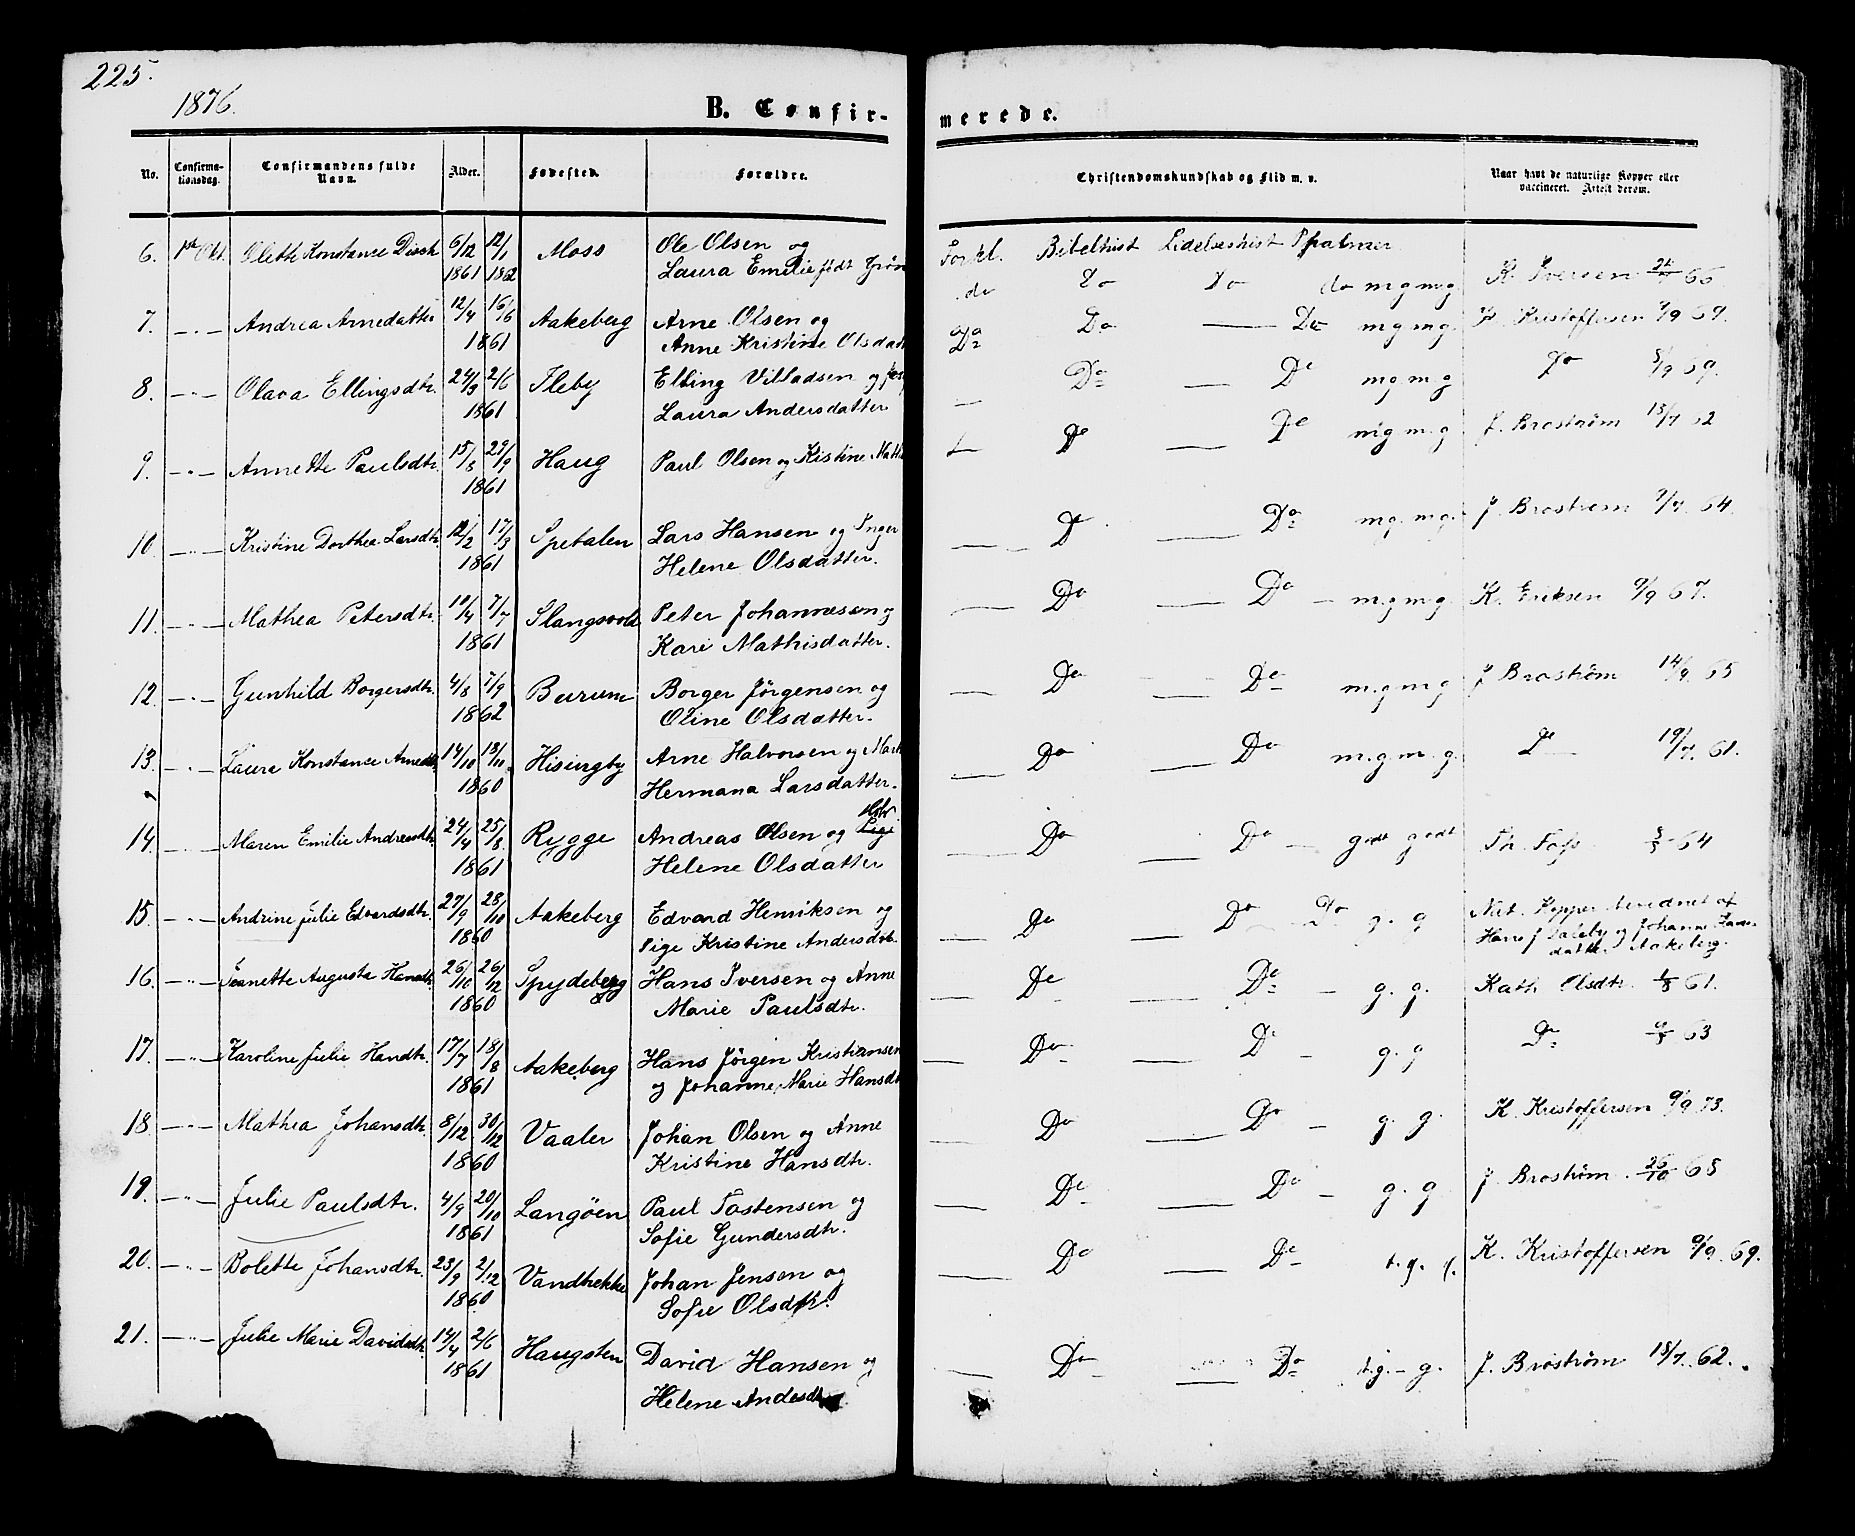 225.
1876.
B. Confir-
merede.
No.
Confirma-
tionsdag.
Confirmandens fulde
Navn.
Alder.
Fødested.
Forældre.
Christendomskundskab og Flid m. v.
Naar havt de naturlige Kopper eller
vaccineret. Attest derom.
6. 1ste Okt. Olette Konstance 6/12 12/1 Moss Ole Olsen og
1861 1862 Laura Emilie født
Forkl. Bibelhist Lidelseshist Psalmer
do Do Do do m.g m.g. K. Iversen 66
7. —"— Andrea Arnedatter 12/4 16/6 Aakeberg Arne Olsen og
1861 Anne Kristine Olsdatt
Do Do — Do m.g m.g. K. Kristoffersen 9/9 69.
8. —"— Olava Ellingsdtr. 24/3 2/6 Ileby Elling Villadsen og
1861 Laura Andersdatter
— Do — Do m.g m.g Do 8/9 69.
9. —"— Annette Paulsdtr. 15/8 29/9 Haug Paul Olsen og Kistine
1861
Do — Do m.g m.g J. Broström 18/7 62
10. —"— Kristine Dorthea Larsdtr. 12/2 17/3 Spetalen Lars Hansen og Inger
1861 Helene Olsdatter.
— Do — Do m.g. m.g. J. Broström 9/7 64.
11. —"— Mathea Petersdtr. 10/4 7/7 Slangsvold Peter Johannesen og
1861 Kari Mathisdatter.
— Do — Do — m.g m.g. K. Eriksen 9/9 67.
12. —"— Gunhild Borgersdtr. 4/8 7/9 Burum Borger Jörgensen og
1862 Oline Olsdatter.
— Do — Do m.g m g J Broström 14/9. 65
13. —"— Laura Konstance Arnedtr. 14/10 18/10. Hisingby Arne Halvorsen og
1860 Hermana Larsdatter.
— Do — Do m.g m.g. Do 19/7. 61.
14. —"— Maren Emilie Andreasdtr. 24/4 25/8. Rygge Andreas Olsen og
1861 Helene Olsdatter
— Do — Do — godt godt Th. Foss 64
15. —"— Andrine Julie Edvardsdtr. 27/9 28/10 Aakeberg Edvard Henriksen og
1860 Pige Kristine Andersdtr.
— Do — Do — Do g. g Nat. Kopper bevidnet af
Hans J. Daleby og Johanne
datter Aakeberg.
16. —"— Jeanette Augusta Hansdtr. 26/10 26/12 Spydeberg Hans Iversen og Anne
1860 Marie Paulsdtr.
— Do — Do — g. g. Kath Olsdtr. 61.
17. —"— Karoline Julie Handtr. 17/7 18/8 Aakeberg Hans Jörgen Kristiansen
1861 og Johanne Marie Hansdt
— Do — Do — g. g Do 63
18. —"— Mathea Johansdtr. 8/12 30/12 Vaaler Johan Olsen og Anne
1860 Kristine Hansdtr.
— Do — Do — g. g. K. Kristoffersen 9/9 73.
19. —"— Julie Paulsdtr. 4/9 20/10 Langöen Paul Tostensen og
1861 Sofie Gundersdtr.
— Do — Do — g. g J. Broström. 26/10 68
20. —"— Bolette Johansdtr. 23/9 2/12 Vandhekke Johan Jensen og
1860 Sofie Olsdtr.
— Do — Do t.g. K. Kristoffersen 9/9. 69.
21. —"— Julie Marie Davidsdtr. 14/4 2/6 Haugsten David Hansen og
1861 Helene Andesdtr
— Do — Do t.g. — g. J. Broström 18/7. 62.